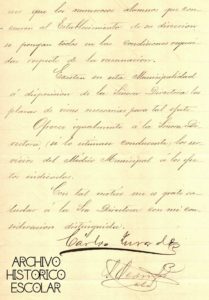 que los numerosos alumnos que con-
curren al Establecimiento de su direccion
se pongan todos en las condiciones reque-
ridas respecto de la vacunacion.
Existen en esta Municipalidad
á disposicion de la Señora Directora las
placas de virus necesarias para tal efecto.
Ofrezco igualmente á la Señora Di-
rectora, si lo estimase conducente, los ser-
vicios del Médico Municipal á los efec-
tos indicados.
Con tal motivo me es grato sa-
ludar á la Sra Directora con mi con-
sideracion distinguida.
Cárlos
ARCHIVO
HISTORICO
ESCOLAR